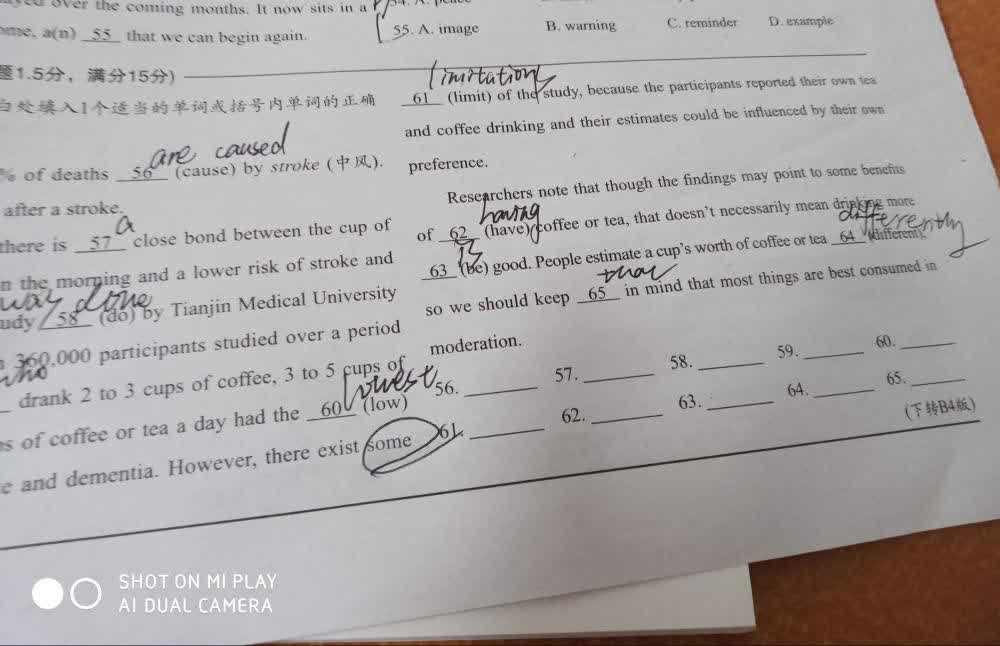 over the coming months. It now sits in a
55. A. image B. warning C. reminder D. example
a(n) 55 that we can begin again.
题1.5分，满分15分)
白处填入1个适当的单词或括号内单词的正确
are caused
% of deaths 56 (cause) by stroke (中风).
after a stroke.
a
there is 57 close bond between the cup of
n the morning and a lower risk of stroke and
was done
udy 58 (do) by Tianjin Medical University
360,000 participants studied over a period
who
drank 2 to 3 cups of coffee, 3 to 5 cups of
lowest
s of coffee or tea a day had the 60 (low)
e and dementia. However, there exist some
limitations
61 (limit) of the study, because the participants reported their own tea
and coffee drinking and their estimates could be influenced by their own
preference.
Researchers note that though the findings may point to some benefits
having
of 62 (have) coffee or tea, that doesn't necessarily mean drinking more
is differently
63 (be) good. People estimate a cup's worth of coffee or tea 64 (different),
that
so we should keep 65 in mind that most things are best consumed in
moderation.
56. 57. 58. 59. 60.
61. 62. 63. 64. 65.
(下转B4版)
SHOT ON MI PLAY
AI DUAL CAMERA